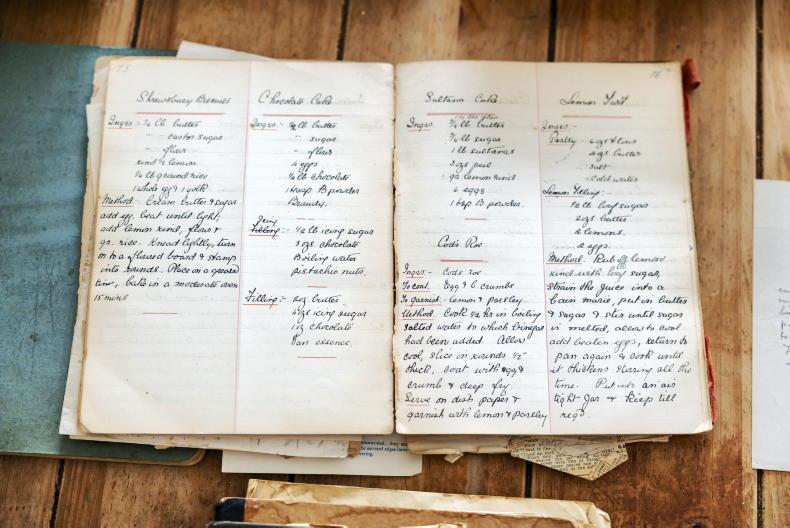 75
Shrewsbury Biscuits
Ingrs:- ¼ lb butter
" castor sugar
" flour
rind of lemon
¼ lb ground rice
1 whole egg & 1 yolk
Method: Cream butter & sugar
add egg, beat until light,
add lemon rind, flour &
gr. rice. Knead lightly, turn
on to a floured board & stamp
into rounds. Place on a greased
tin, bake in a moderate oven
15 mins
Chocolate Cake
Ingrs:- ½ lb butter
" sugar
" flour
4 eggs
¼ lb chocolate
1 teasp B powder
Brandy.
Icing
Filling:- ½ lb icing sugar
3 ozs chocolate
Boiling water
pistachio nuts.
Filling:- 2oz butter
4ozs icing sugar
1oz chocolate
Van essence.
76
Sultana Cake
Ingrs:- ¾ lb butter
¾ lb sugar
1 lb sultanas
3 ozs peel
gr. lemon rind
6 eggs
1 tsp B powder.
Cod's Roe
Ingrs:- Cods roe
To coat:- Egg & b. crumbs
To garnish:- lemon & parsley.
Method. Cook ½ hr in boiling
salted water to which vinegar
had been added. Allow
cool, slice in rounds ½"
thick, coat with egg &
crumb & deep fry
Serve on dish paper &
garnish with lemon & parsley
Lemon Tart
Ingrs:-
Pastry- 6 ozs flour
4 ozs butter
salt
cold water
Lemon Filling:-
½ lb loaf sugar
2 ozs butter
2 lemons.
2 eggs.
Method. Rub off lemon
rind with loaf sugar,
strain the juice into a
bain marie, put in butter
& sugar & stir until sugar
is melted, allow to cool
add beaten eggs, return to
pan again & cook until
it thickens stirring all the
time. Put into an air
tight jar & keep till
reqd.